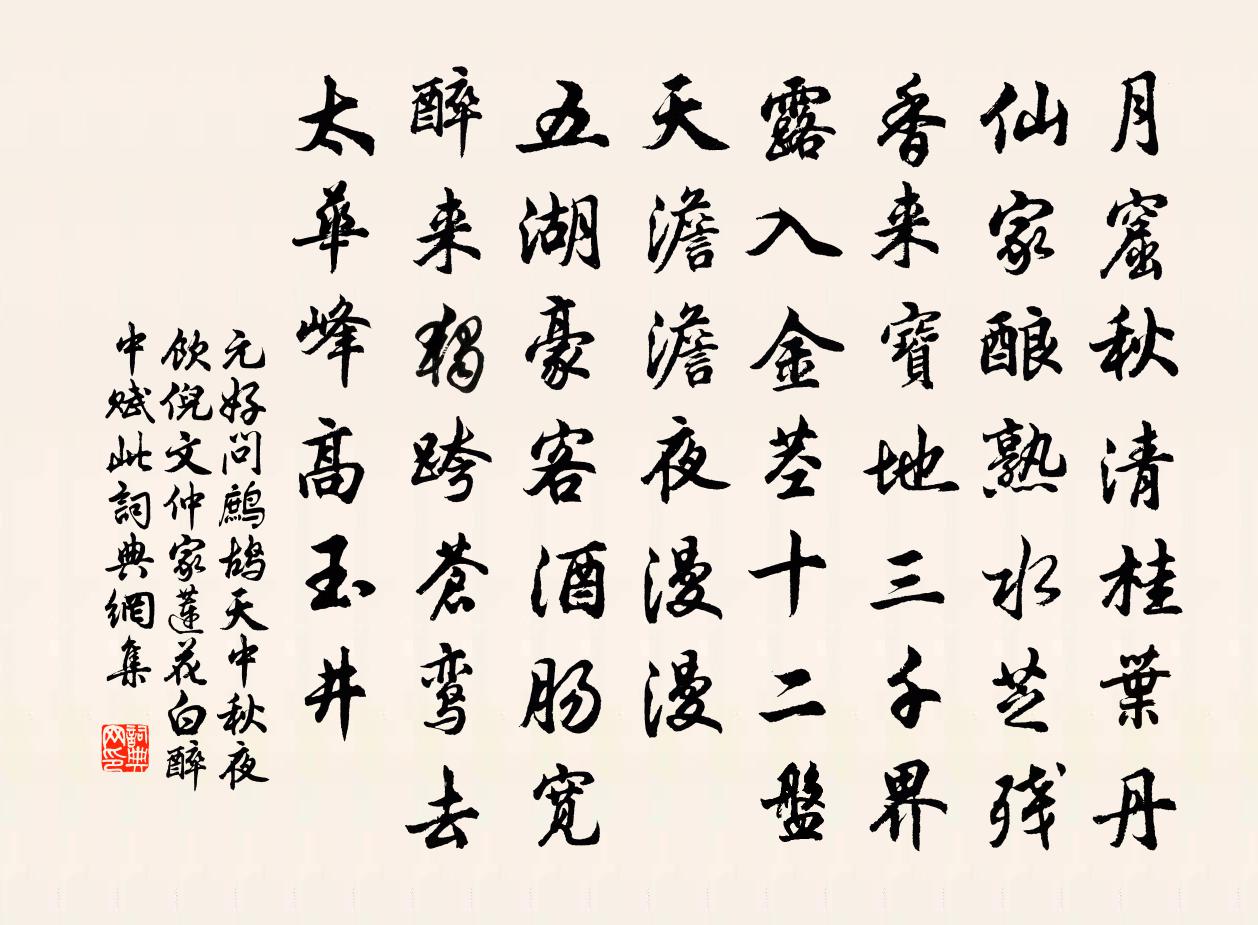 月窟秋清桂葉丹
仙家酿熟水芝残
香来寶地三千界
露入金茎十二盤
天澹澹夜漫漫
五湖豪客酒肠宽
醉来独跨蒼鸾去
太華峰高玉井
元好问鷓鴣天中秋夜
飲倪文仲家蓮花白醉
中赋此詞典網集
詞典网印